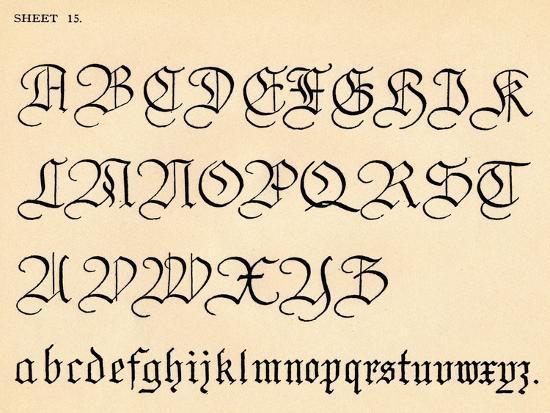 SHEET 15.
ABCDEFGHIK
LMNOPQRST
UVWXYZ
abcdefghijklmnopqrstuvwxyz.